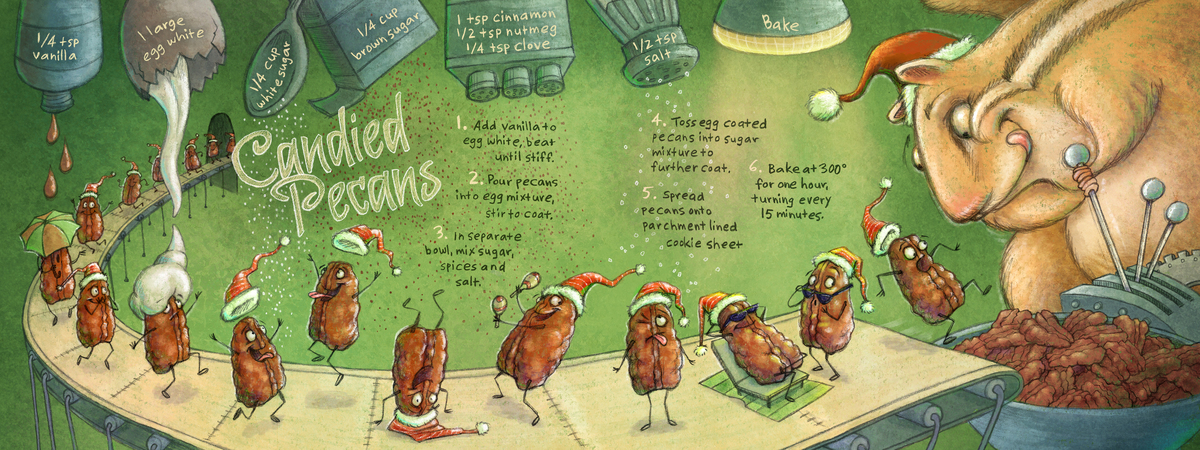 1/4 tsp
vanilla
1 large
egg white
1/4 cup
white sugar
1/4 cup
brown sugar
1 tsp cinnamon
1/2 tsp nutmeg
1/4 tsp clove
1/2 tsp
salt
Bake
Candied
Pecans
1. Add vanilla to
egg white, beat
until stiff.
2. Pour pecans
into egg mixture,
stir to coat.
3. In separate
bowl, mix sugar,
spices and
salt.
4. Toss egg coated
pecans into sugar
mixture to
further coat.
5. Spread
pecans onto
parchment lined
cookie sheet
6. Bake at 300°
for one hour,
turning every
15 minutes.